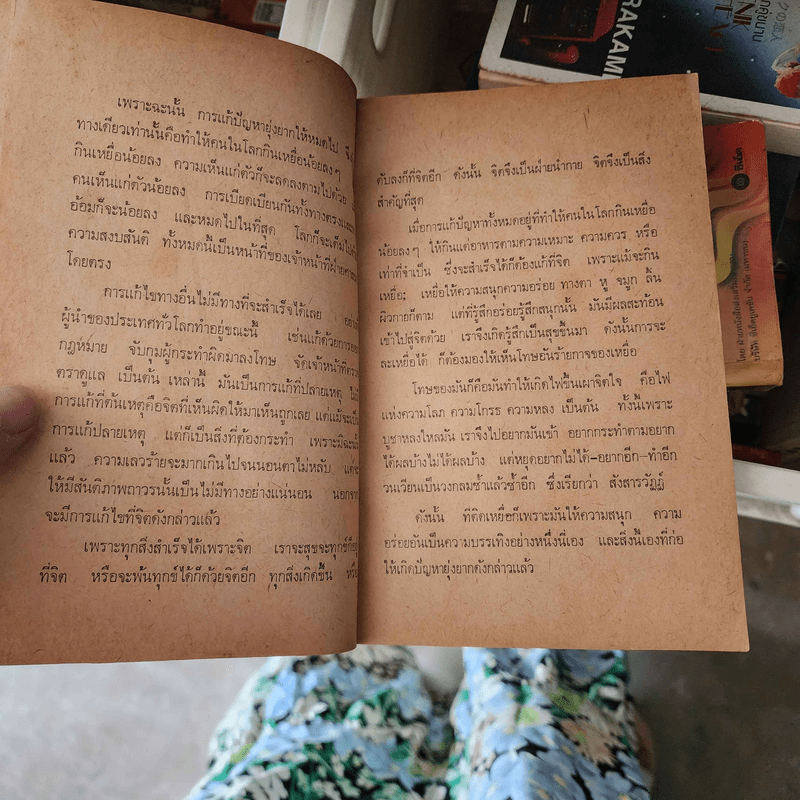 เพราะฉะนั้น การแก้ปัญหายุ่งยากให้หมดไป จึง
ทางเดียวเท่านั้นคือทำให้คนในโลกกินเหยื่อน้อยลงๆ
กินเหยื่อน้อยลง ความเห็นแก่ตัวก็จะลดลงตามไปด้วย
คนเห็นแก่ตัวน้อยลง การเบียดเบียนกันทั้งทางตรงและ
อ้อมก็จะน้อยลง และหมดไปในที่สุด โลกก็จะเต็มไป
ความสงบสันติ ทั้งหมดนี้เป็นหน้าที่ของเจ้าหน้าที่ฝ่าย
โดยตรง
การแก้ไขทางอื่นไม่มีทางที่จะสำเร็จได้เลย
ผู้นำของประเทศทั่วโลกทำอยู่ขณะนี้ เช่นแก้ด้วยการ
กฎหมาย จับกุมผู้กระทำผิดมาลงโทษ จัดเจ้าหน้าที่
ตราดูแล เป็นต้น เหล่านี้ มันเป็นการแก้ที่ปลายเหตุ
การแก้ที่ต้นเหตุคือจิตที่เห็นผิดให้มาเห็นถูกเลย แต่แม้จะเป็น
การแก้ปลายเหตุ แต่ก็เป็นสิ่งที่ต้องกระทำ เพราะมิฉะ
แล้ว ความเลวร้ายจะมากเกินไปจนนอนตาไม่หลับ แต่
ให้มีสันติภาพถาวรนั้นเป็นไม่มีทางอย่างแน่นอน นอกจาก
จะมีการแก้ไขที่จิตดังกล่าวแล้ว
เพราะทุกสิ่งสำเร็จได้เพราะจิต เราจะสุขจะทุกข์ก็
ที่จิต หรือจะพ้นทุกข์ได้ก็ด้วยจิตอีก ทุกสิ่งเกิดขึ้น หรือ
ดับลงก็ที่จิตอีก ดังนั้น จิตจึงเป็นฝ่ายนำกาย จิตจึงเป็นสิ่ง
สำคัญที่สุด
เมื่อการแก้ปัญหาทั้งหมดอยู่ที่ทำให้คนในโลกกินเหยื่อ
น้อยลงๆ ให้กินแต่อาหารตามความเหมาะ ความควร หรือ
เท่าที่จำเป็น ซึ่งจะสำเร็จได้ก็ต้องแก้ที่จิต เพราะแม้จะกิน
เหยื่อ; เหยื่อให้ความสนุกความอร่อย ทางตา หู จมูก ลิ้น
ผิวกายก็ตาม แต่ที่รู้สึกอร่อยรู้สึกสนุกนั้น มันมีผลสะท้อน
เข้าไปสู่จิตด้วย เราจึงเกิดรู้สึกเป็นสุขขึ้นมา ดังนั้นการจะ
ละเหยื่อได้ ก็ต้องมองให้เห็นโทษอันร้ายกาจของเหยื่อ
โทษของมันก็คือมันทำให้เกิดไฟขึ้นเผาจิตใจ คือไฟ
แห่งความโลภ ความโกรธ ความหลง เป็นต้น ทั้งนี้เพราะ
บูชาหลงใหลมัน เราจึงไปอยากมันเข้า อยากกระทำตามอยาก
ได้ผลบ้างไม่ได้ผลบ้าง แต่หยุดอยากไม่ได้-อยากอีก-ทำอีก
วนเวียนเป็นวงกลมซ้ำแล้วซ้ำอีก ซึ่งเรียกว่า สังสารวัฏฏ์
ดังนั้น ที่ติดเหยื่อก็เพราะมันให้ความสนุก ความ
อร่อยอันเป็นความบรรเทิงอย่างหนึ่งนี่เอง และสิ่งนี้เองที่ก่อ
ให้เกิดปัญหายุ่งยากดังกล่าวแล้ว
RAKAMI